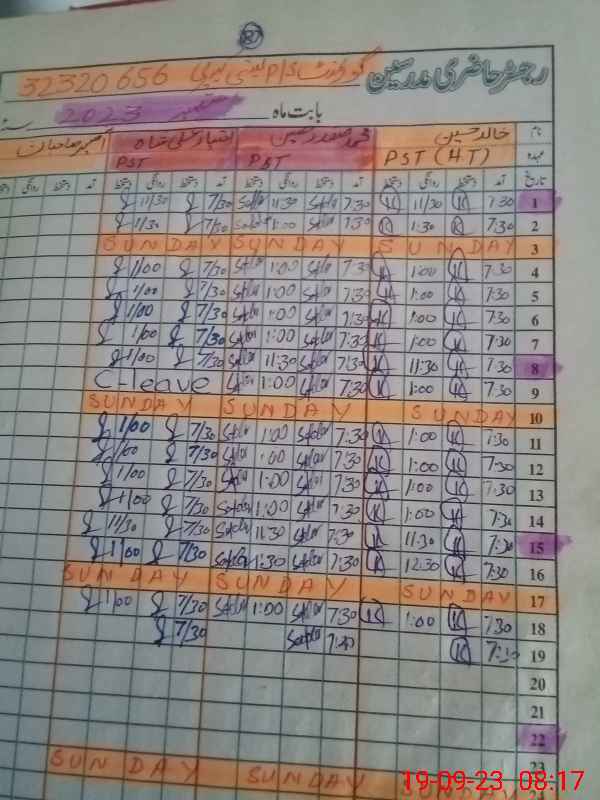 رجسٹر حاضری مدرسین گورنمنٹ P/S 32320656
بابت ماہ ستمبر 2023 سنہ
نام خالد حسین محمد صفدر حسین
عہدہ PST (HT) PST PST
تاریخ آمد دستخط روانگی دستخط آمد دستخط روانگی دستخط آمد دستخط روانگی دستخط
1 7:30 K 11/30 K 7:30 Safdar 11:30 Safdar 7/30 11/30
2 7:30 K 1:30 K 7:30 Safdar 1:00 Safdar 7/30 1/30
3 SUNDAY SUNDAY SUNDAY
4 7:30 K 1:00 K 7:30 Safdar 1:00 Safdar 7/30 1/00
5 7:30 K 1:00 K 7:30 Safdar 1:00 Safdar 7/30 1/00
6 7:30 K 1:00 K 7:30 Safdar 1:00 Safdar 7/30 1/00
7 7:30 K 1:00 K 7:30 Safdar 1:00 Safdar 7/30 1/00
8 7:30 K 11:30 K 7:30 Safdar 11:30 Safdar 7/30 1/00
9 7:30 K 1:00 K 7:30 Safdar 1:00 Safdar C-leave
10 SUNDAY SUNDAY SUNDAY
11 7:30 K 1:00 K 7:30 Safdar 1:00 Safdar 7/30 1/00
12 7:30 K 1:00 K 7:30 Safdar 1:00 Safdar 7/30 1/00
13 7:30 K 1:00 K 7:30 Safdar 1:00 Safdar 7/30 1/00
14 7:30 K 1:00 K 7:30 Safdar 1:00 Safdar 7/30 1/00
15 7:30 K 11:30 K 7:30 Safdar 11:30 Safdar 7/30 11/30
16 7:30 K 12:30 K 7:30 Safdar 1:30 Safdar 7/30 1/00
17 SUNDAY SUNDAY SUNDAY
18 7:30 K 1:00 K 7:30 Safdar 1:00 Safdar 7/30 1/00
19 7:30 K Safdar 7/30
20
21
22
23
SUNDAY SUNDAY
19-09-23 08:17